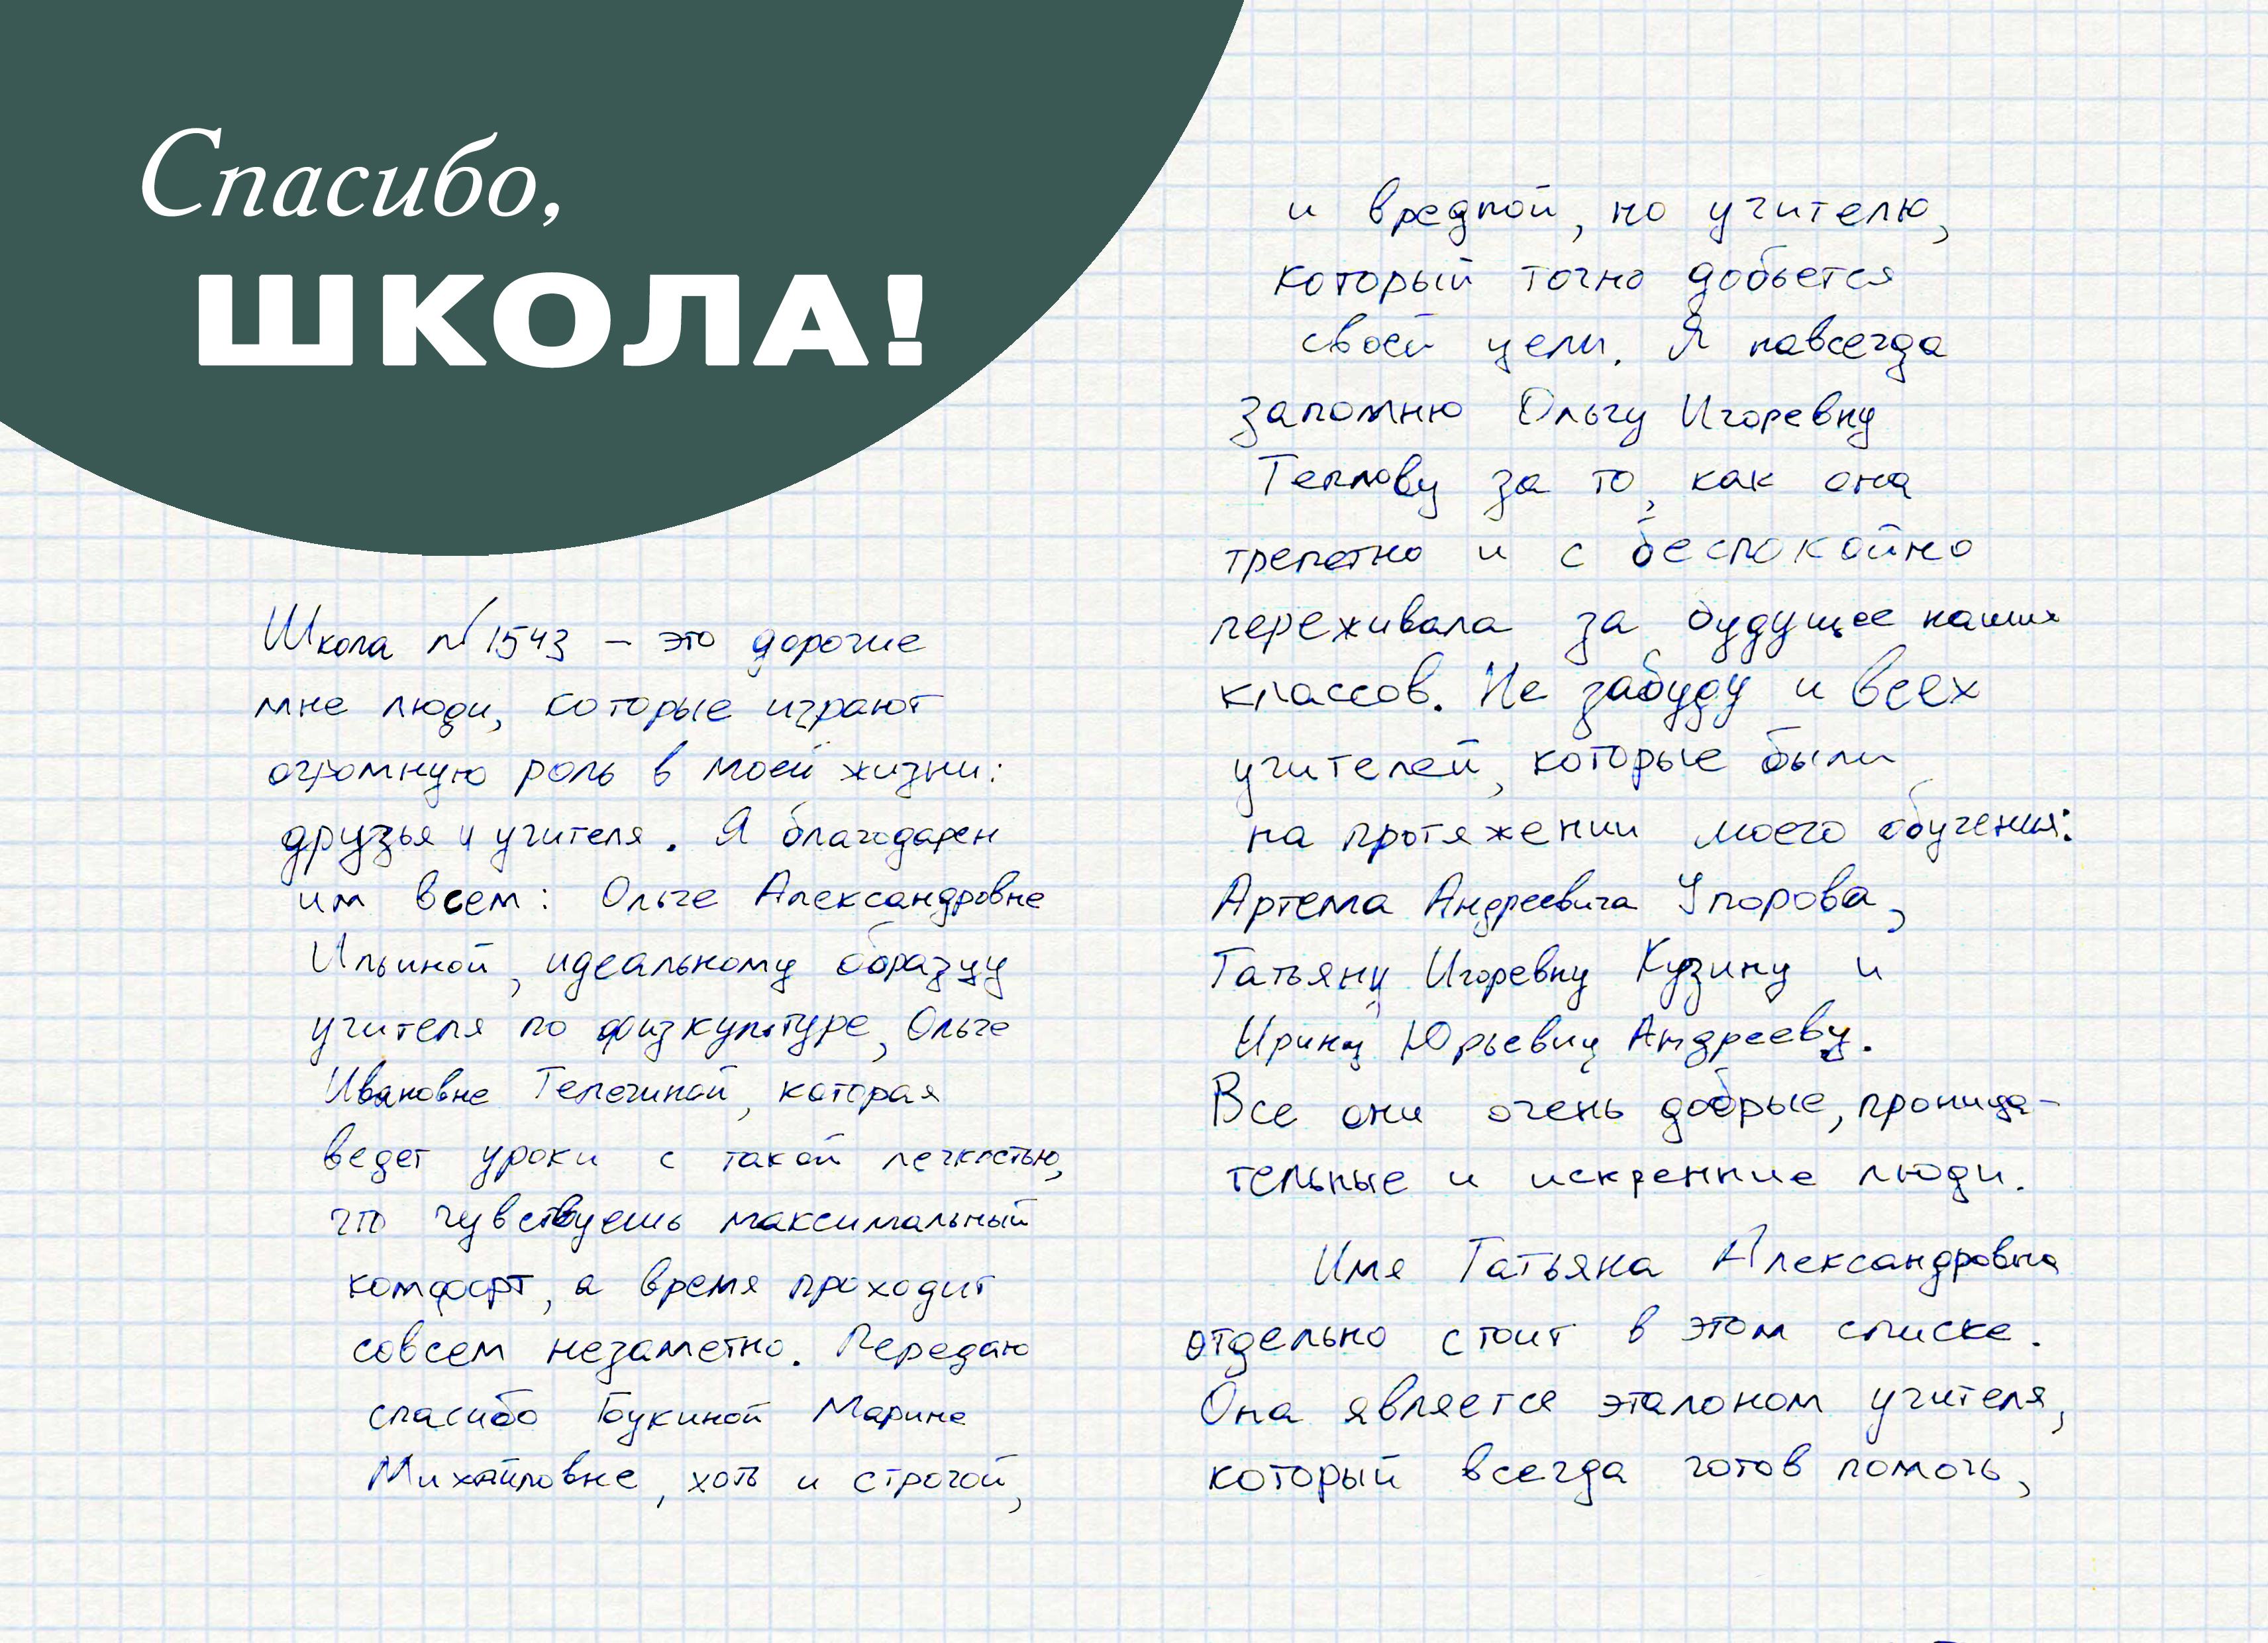 Спасибо,
ШКОЛА!
Школа №1543 – это дорогие
мне люди, которые играют
огромную роль в моей жизни:
друзья и учителя. Я благодарен
им всем: Ольге Александровне
Ильиной, идеальному образцу
учителя по физкультуре, Ольге
Ивановне Телегиной, которая
ведет уроки с такой легкостью,
что чувствуешь максимальный
комфорт, а время проходит
совсем незаметно. Передаю
спасибо Марине
Михайловне, хоть и строгой,
и вредной, но учителю,
который точно добьется
своей цели. Я навсегда
запомню Ольгу Игоревну
Теплову за то, как она
трепетно и с беспокойно
переживала за будущее наших
классов. Не забуду и всех
учителей, которые были
на протяжении моего обучения:
Артема Андреевича Упорова,
Татьяну Игоревну Кузину и
Ирину Юрьевну Андрееву.
Все они очень добрые, проница-
тельные и искренние люди.
Имя Татьяна Александровна
отдельно стоит в этом списке.
Она является эталоном учителя,
который всегда готов помочь,